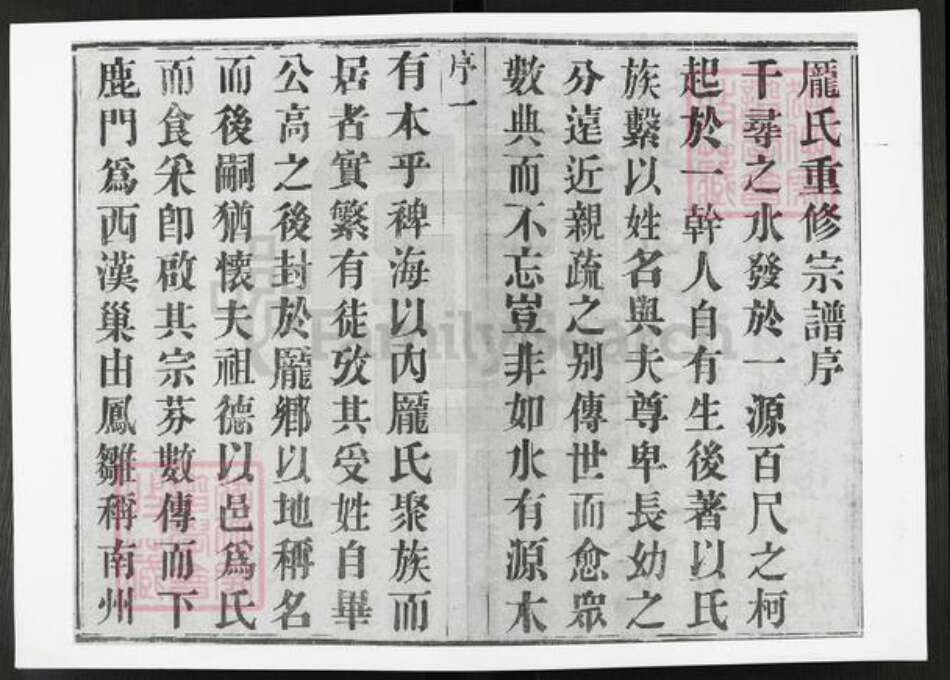 龐氏重修宗譜序
千尋之水發於一源百尺之柯
起於一幹人自有生後著以氏
族繫以姓名與夫尊卑長幼之
分遠近親疏之别傳世而愈眾
數典而不忘豈非如水有源木
序一
有本乎稗海以內龐氏聚族而
居者實繁有徒攷其受姓自畢
公高之後封於龐鄉以地稱名
而後嗣猶懷夫祖德以邑爲氏
而食采卽啟其宗芬數傳而下
鹿門爲西漢巢由鳳雛稱南州
FamilySearch